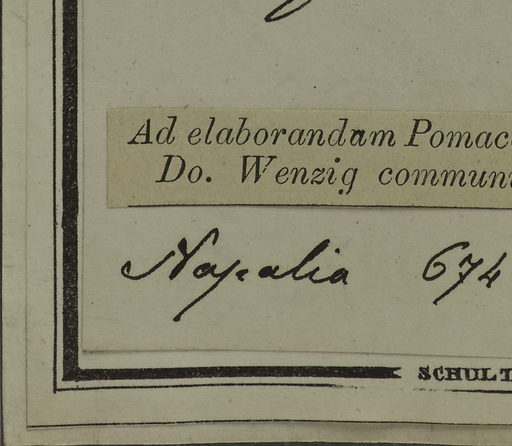 Ad elaborandam Pomac
Do. Wenzig commun
Napalia 674
SCHULT